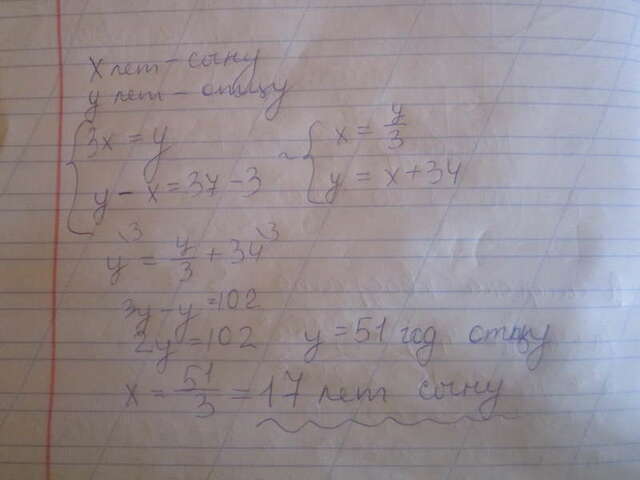 x лет - сыну
y лет - отцу
{ 3x = y
y - x = 37 - 3
~ { x = y/3
y = x + 34
y^3 = y/3 + 34^3
3y - y = 102
2y = 102 y = 51 год отцу
x = 51/3 = 17 лет сыну